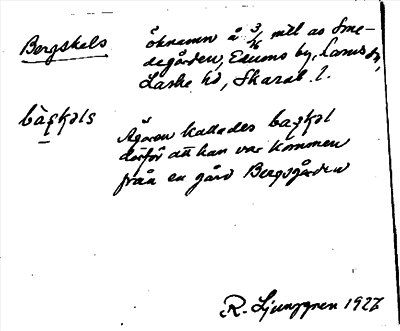 Bergskels öknamn å 3/16 mtl av Sme-
degården, Edums by, Lanis sn,
Laske hd, Skarab. l.
bàɟɟəls Ägaren kallades baɟɟəl
därför att han var kommen
från en gård Bergsgården
R. Ljunggren 1927